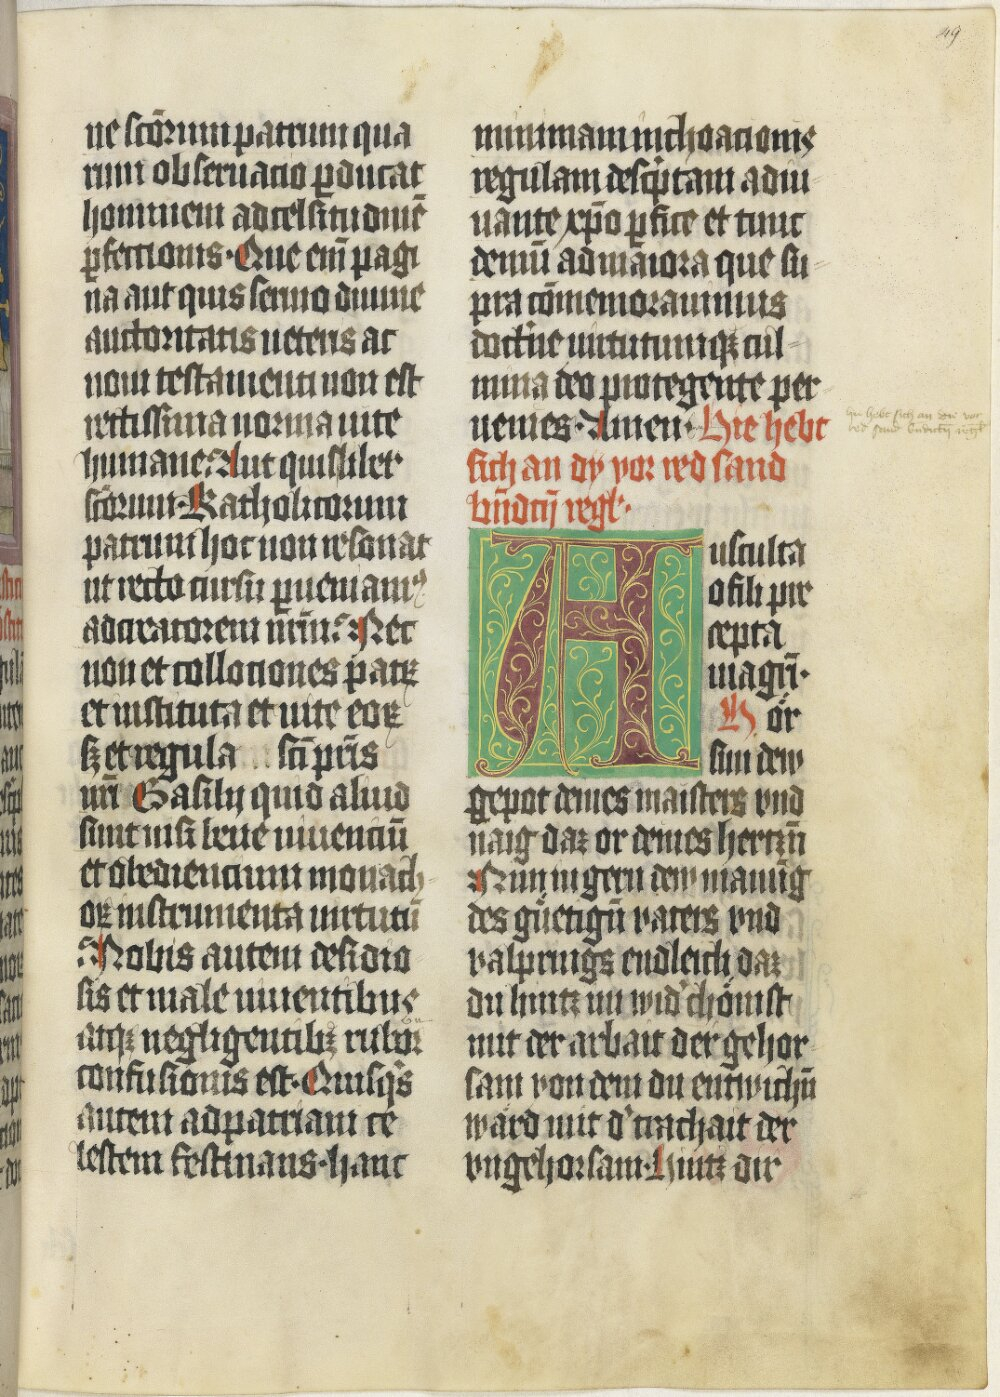 49
ne sc̄orum patrum qua
rum obseruacio ꝑducat
hominem ad celsitudinē
ꝑfectionis. Que em̄ pagi
na aut quis sermo diuine
auctoritatis ueteris ac
noui testamenti non est
rectissima norma uite
humane. Aut quis liber
sc̄orum Katholicorum
patrum hoc non resonat
ut recto cursu ꝑueniamꝰ
ad creatorem nr̄m. Nec
non et collociones patꝝ
et instituta et uite eoꝝ
sꝫ et regula sc̄i pr̄is
nr̄i Basilij quid aliud
sunt nisi bene uiuenciū
et obediencium monach
oꝝ instrumenta uirtutū
Nobis autem desidio
sis et male uiuentibus
atqꝫ negligentibꝫ rubor
confusionis est. Quisqͥs
autem ad patriam ce
lestem festinans. hanc
minimam inchoacionis
regulam descͥptam adiu
uante xp̄o ꝑfice et tunc
demū ad maiora que su
pra cōmemorauimus
doctͥne uirtutumqꝫ cul
mina deo protegente per
uenies. Amen. Hie hebt
sich an dy vor red sand
bn̄dictj regl.
Ausculta
o fili pre
cepta
magrͥ.
Hör
sun dew
gepot deines maisters vnd
naig daz or deines hertzn̄
Nim in gern dew manūg
des gu̇etign̄ vaters vnd
valprinḡs endleich daz
du hintz im wid'chömst
mit der arbait der gehor
sam von dem du entwichn̄
wärd mit d' trachait der
vngehorsam. Hintz dir
hie hebt sich an die vor
red sand bn̄dictj regl